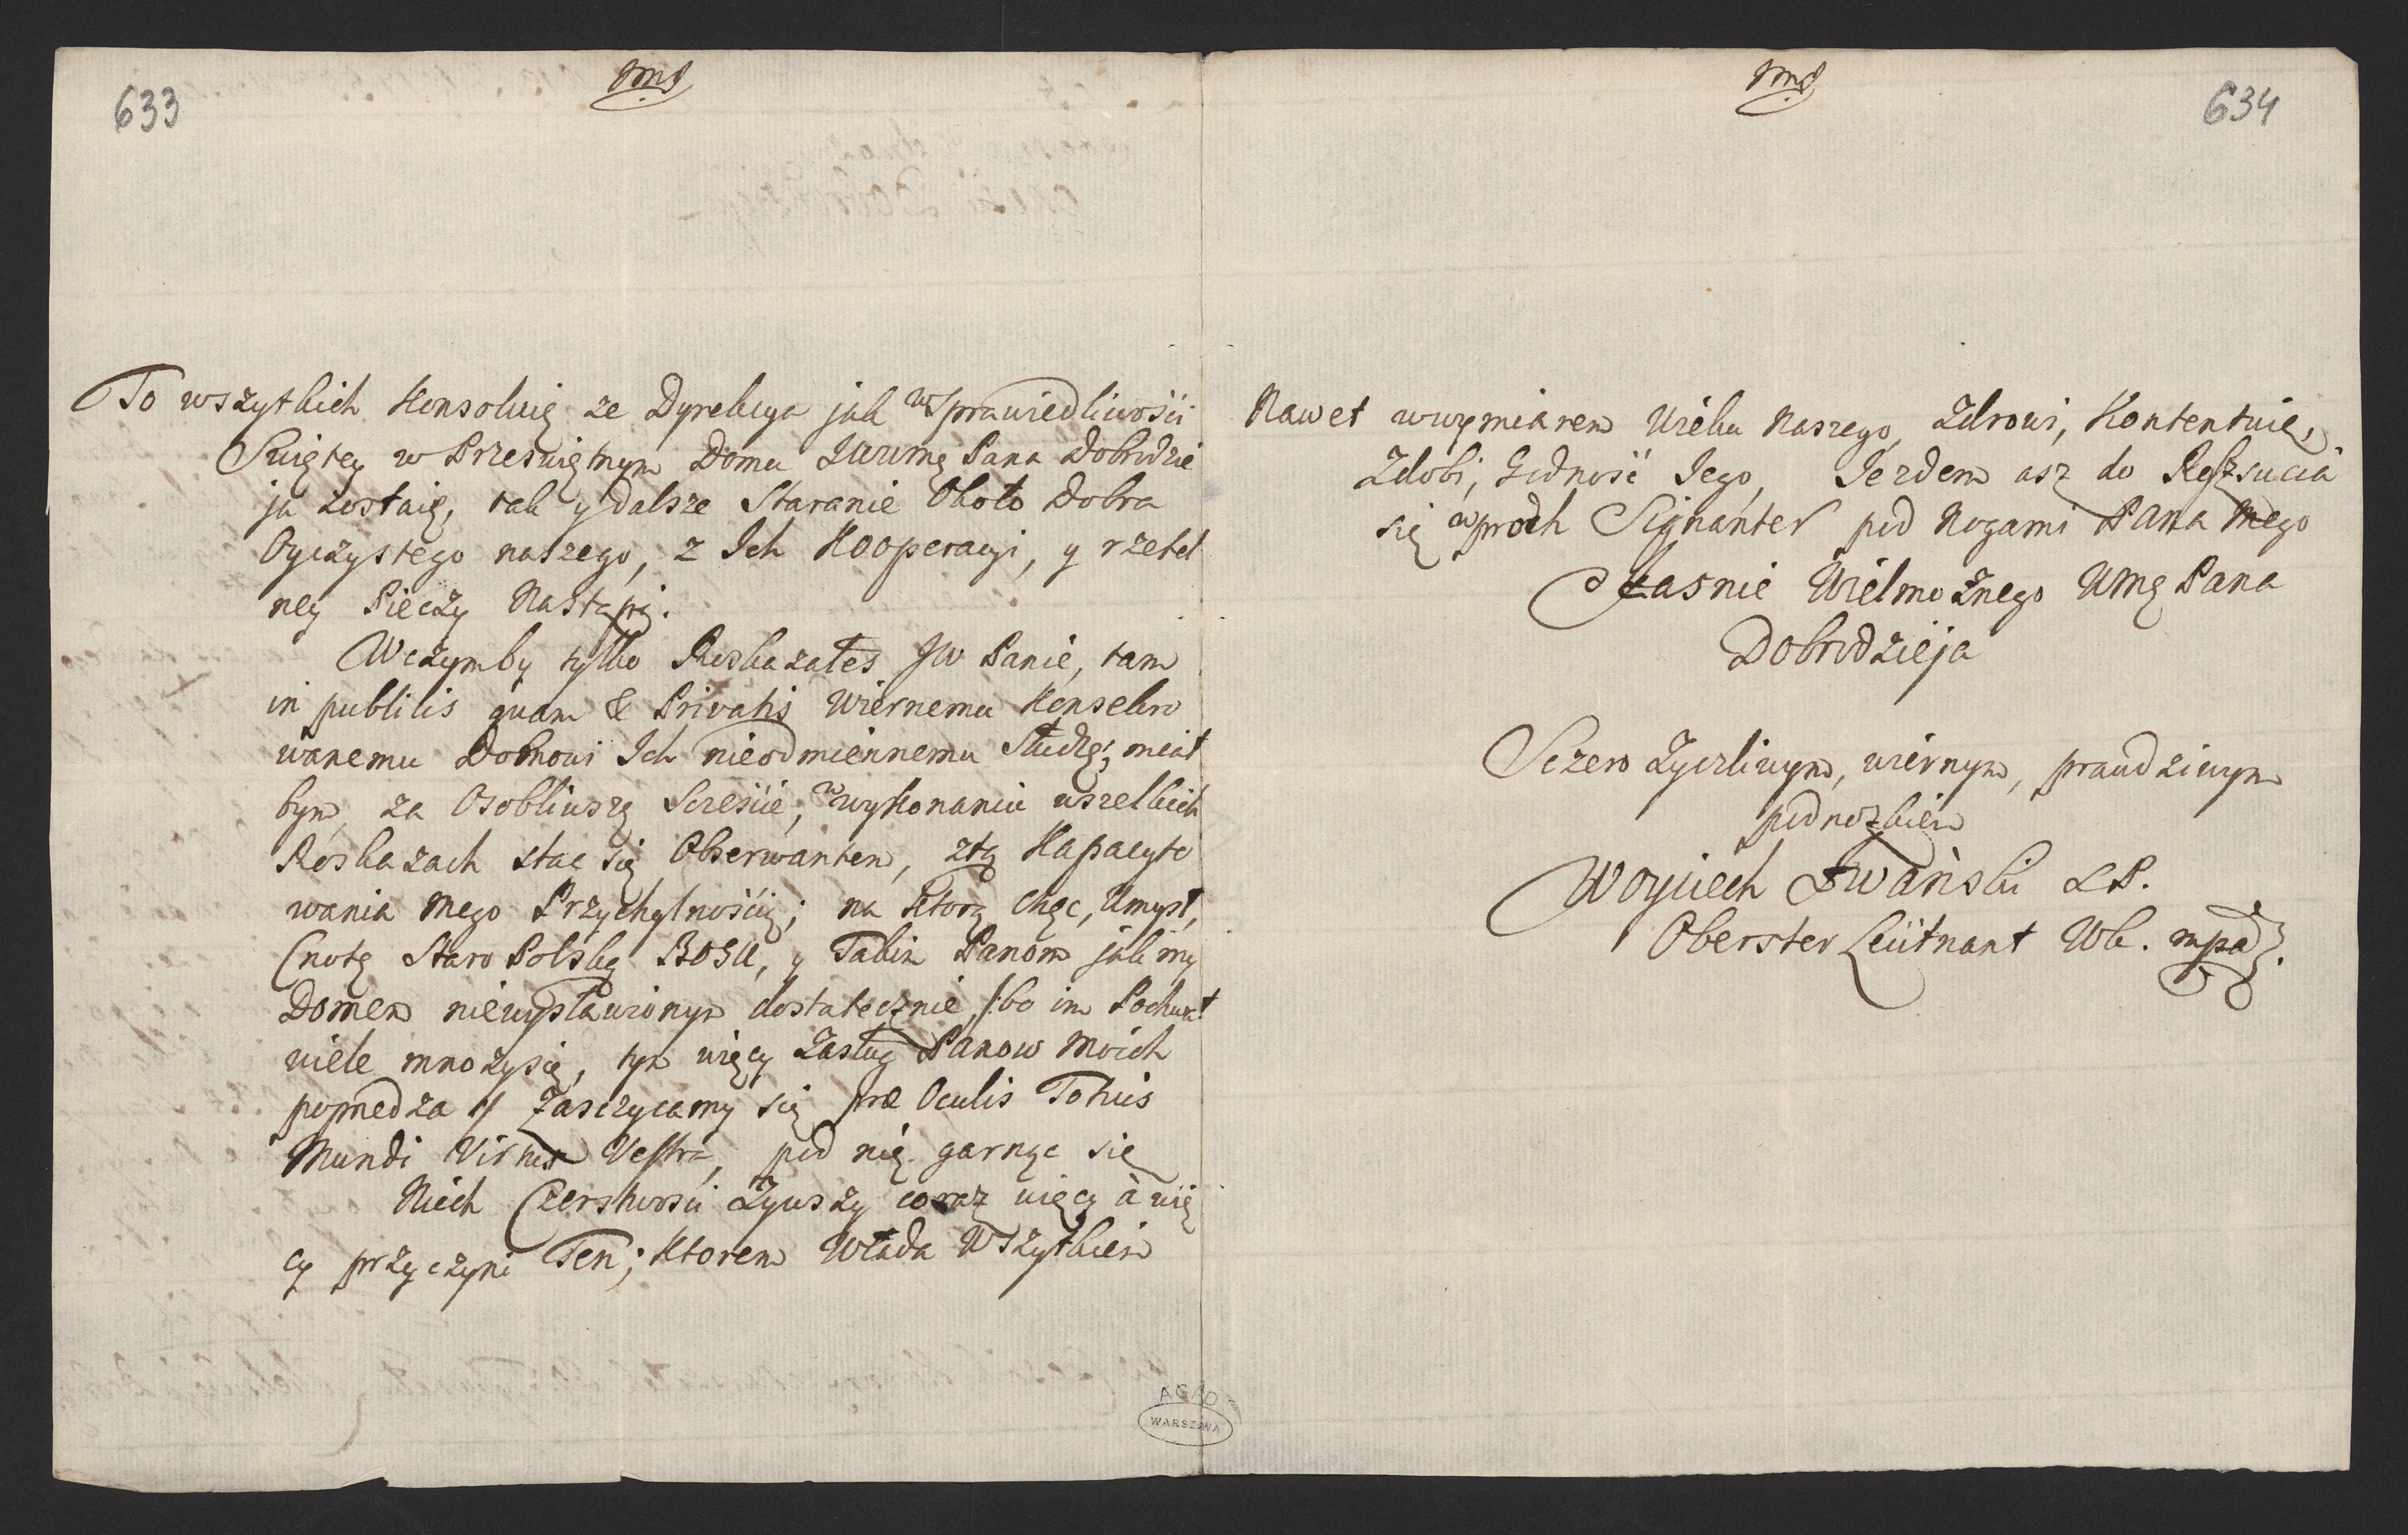 633
To wszytkich Konsoluię ze Dyrekcya jak w Sprawiedliwości
Swiętey w Przeświętnym Domu JWWMę Pana Dobrodzie
ja zostaię, tak y dalsze Staranie Około Dobra
Oyczystego naszego, z Ich Kooperacyi, y rzetel
ney Pieczy Nastąpi.
Wczymby tylko Roskazałes JW Panie, tam
in publicis quam & Privatis Wiernemu Konsekro
wanemu Domowi Ich nieodmiennemu Słudze; miał
bym, za Osobliwszę Scręście, w wykonaniu wszelkich
Roskazach stac się Obserwantem, ztą Kapacyto
wania mego Przychylnością; na Ktorą Chęc, Umysł,
Cnotę Staro Polską BOGU, y Takim Panom jak my
Domem niewysławionym dostatecznie, /:bo im Pochwał
wiele mnoży się, tym więcy Zasług Panow Moich
poprzedza :/ Zasczycamy się præ Oculis Totius
Mundi Virtus Vestra, pod nię garnąc się
Niech Czerstwości Zywszy coraz więcy à wię
cy przyczyni Ten; Ktorem Włada Wszytkiem
AGAD
WARSZAWA
634
Nawet wwymiarem Wieku Naszego, Zdrowi, Kontentuie,
Zdobi, Godność Jego, Jezdem asz do Roszsucia
się w proch Signanter pod Nogami Pana Mego
Jasnie Wielmożnego WMę Pana
Dobrodzieja
Sczero Zyczliwym, wiernym, prawdziwym
podnoszkiem
Woyciech Iwański LP.
Oberster Leütnant Wk. mpa